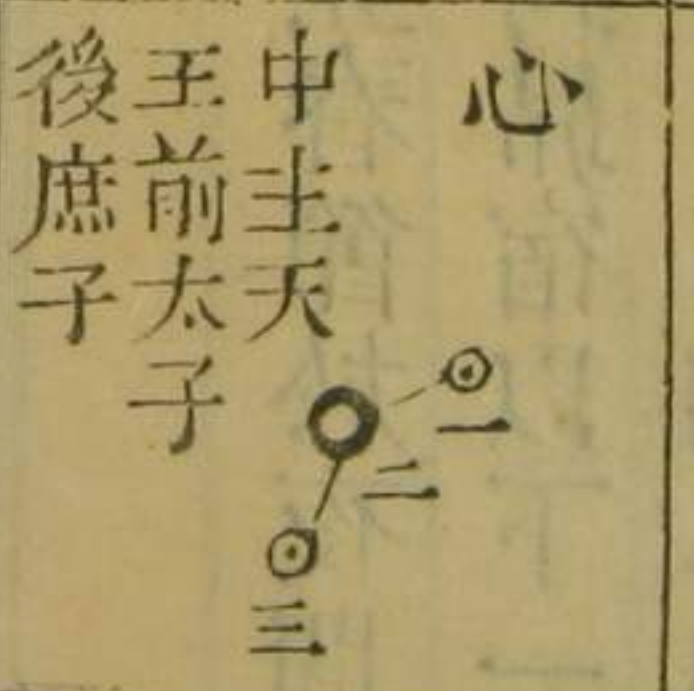 心
中主天
王前太子
後庶子
一
二
三